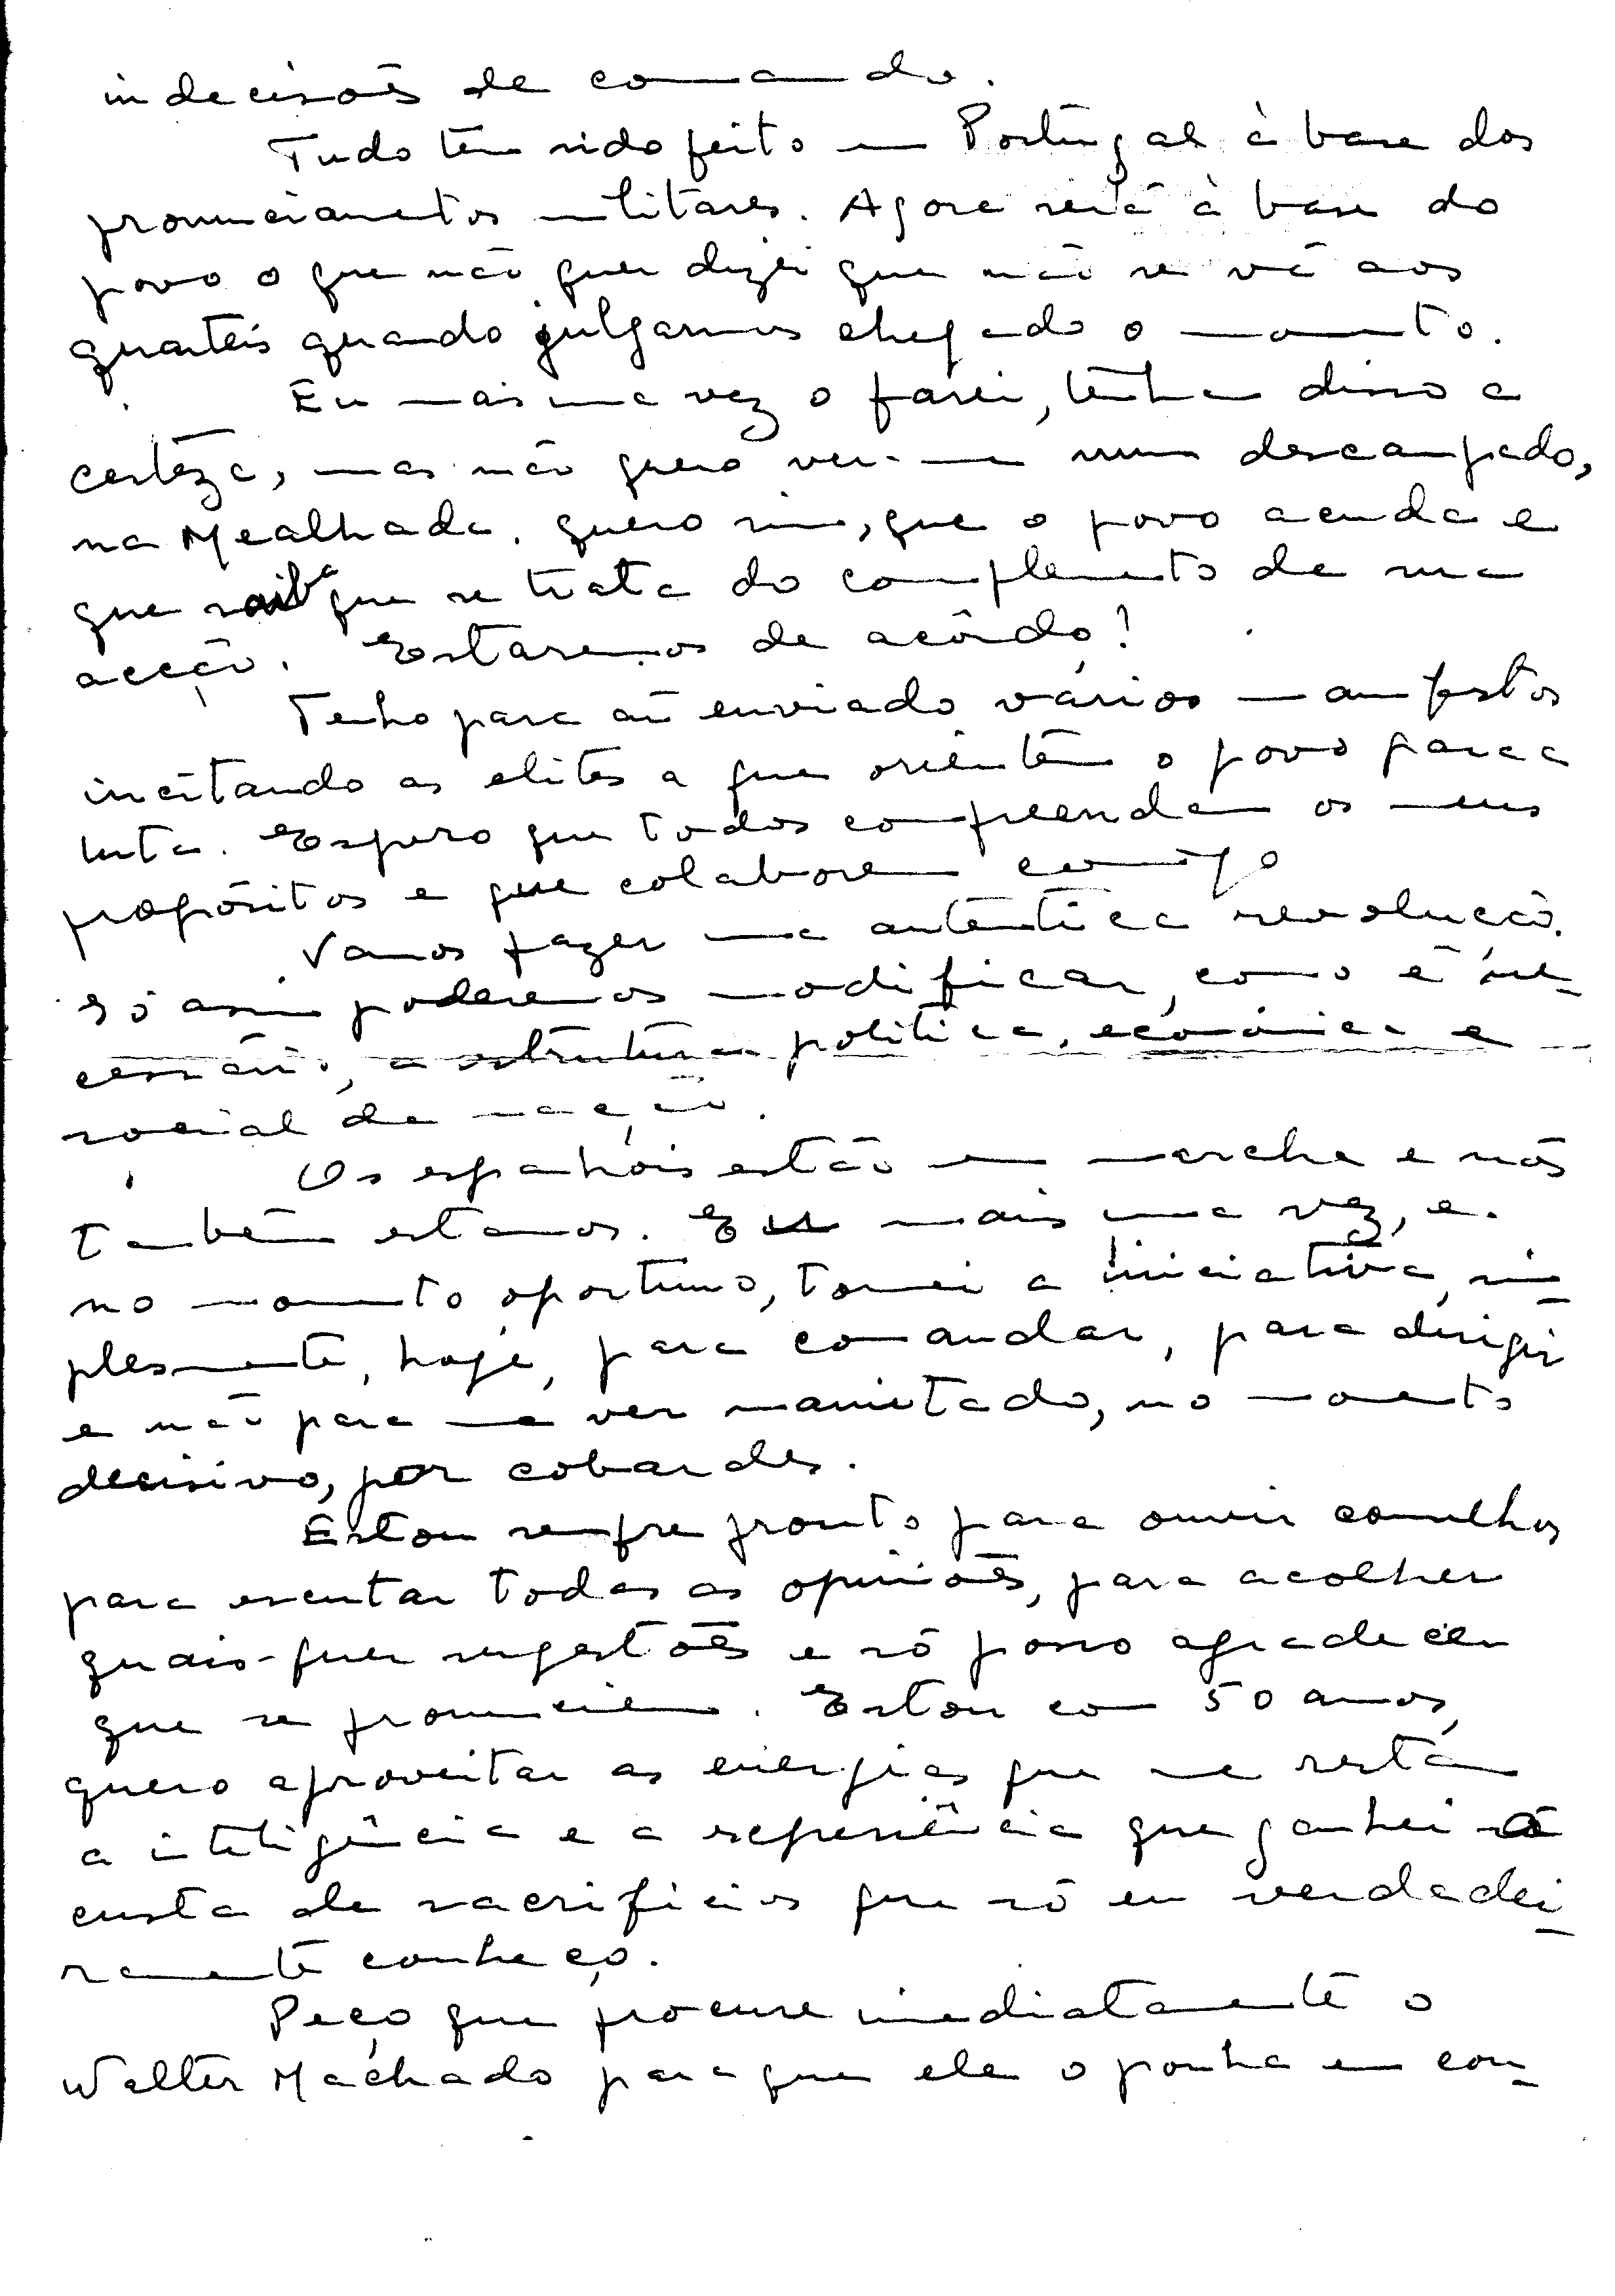 indecisões de comando.
Tudo tem sido feito em Portugal à base dos
pronunciamentos militares. Agora será à base do
povo o que não quer dizer que não se vá aos
quarteis quando julgarmos chegado o momento.
Eu mais uma vez o farei, tenham disso a
certeza, mas não quero ver-me num descampado,
na Mealhada. quero sim, que o povo acuda e
que saiba que se trata do complemento de uma
acção. Estaremos de acôrdo?
Tenho para aí enviado vários manifestos
incitando as elites a que orientem o povo para a
luta. Espero que todos compreendam os meus
propósitos e que colaborem comigo
Vamos fazer uma autêntica revolução.
Só assim poderemos modificar, como é ne-
cessário, a estrutura politica, económica e
social da nação.
Os espanhóis estão em marcha e nós
também estamos. Eu mais uma vez, e.
no momento oportuno, tomei a iniciativa, sim-
plesmente, hoje, para comandar, para dirigir
e não para me ver manietado, no momento
decisivo, por cobardes.
Estou sempre pronto para ouvir conselhos
para escutar todas as opiniões, para acolher
quais-quer sugestões e só posso agradecer
que se pronunciem. Estou com 50 anos,
quero aproveitar as energias que me restam
a inteligência e a experiência que ganhei à
custa de sacrificios que só eu verdadei-
ramente conheço.
Peço que procure imediatamente o
Walter Machado para que ele o ponha em con-